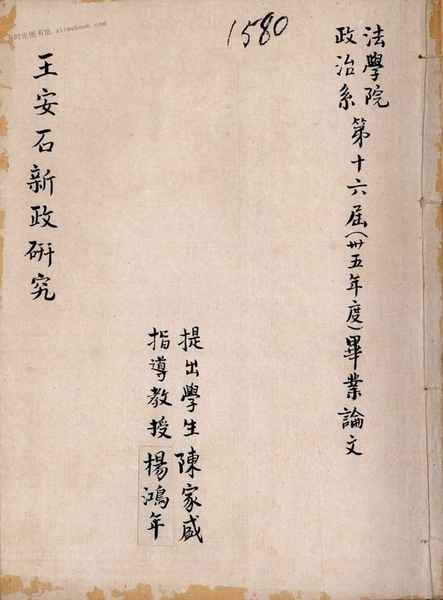 1580
法學院
政治系
第十六屆(卅五年度)畢業論文
提出學生 陳家盛
指導教授 楊鴻年
王安石新政研究